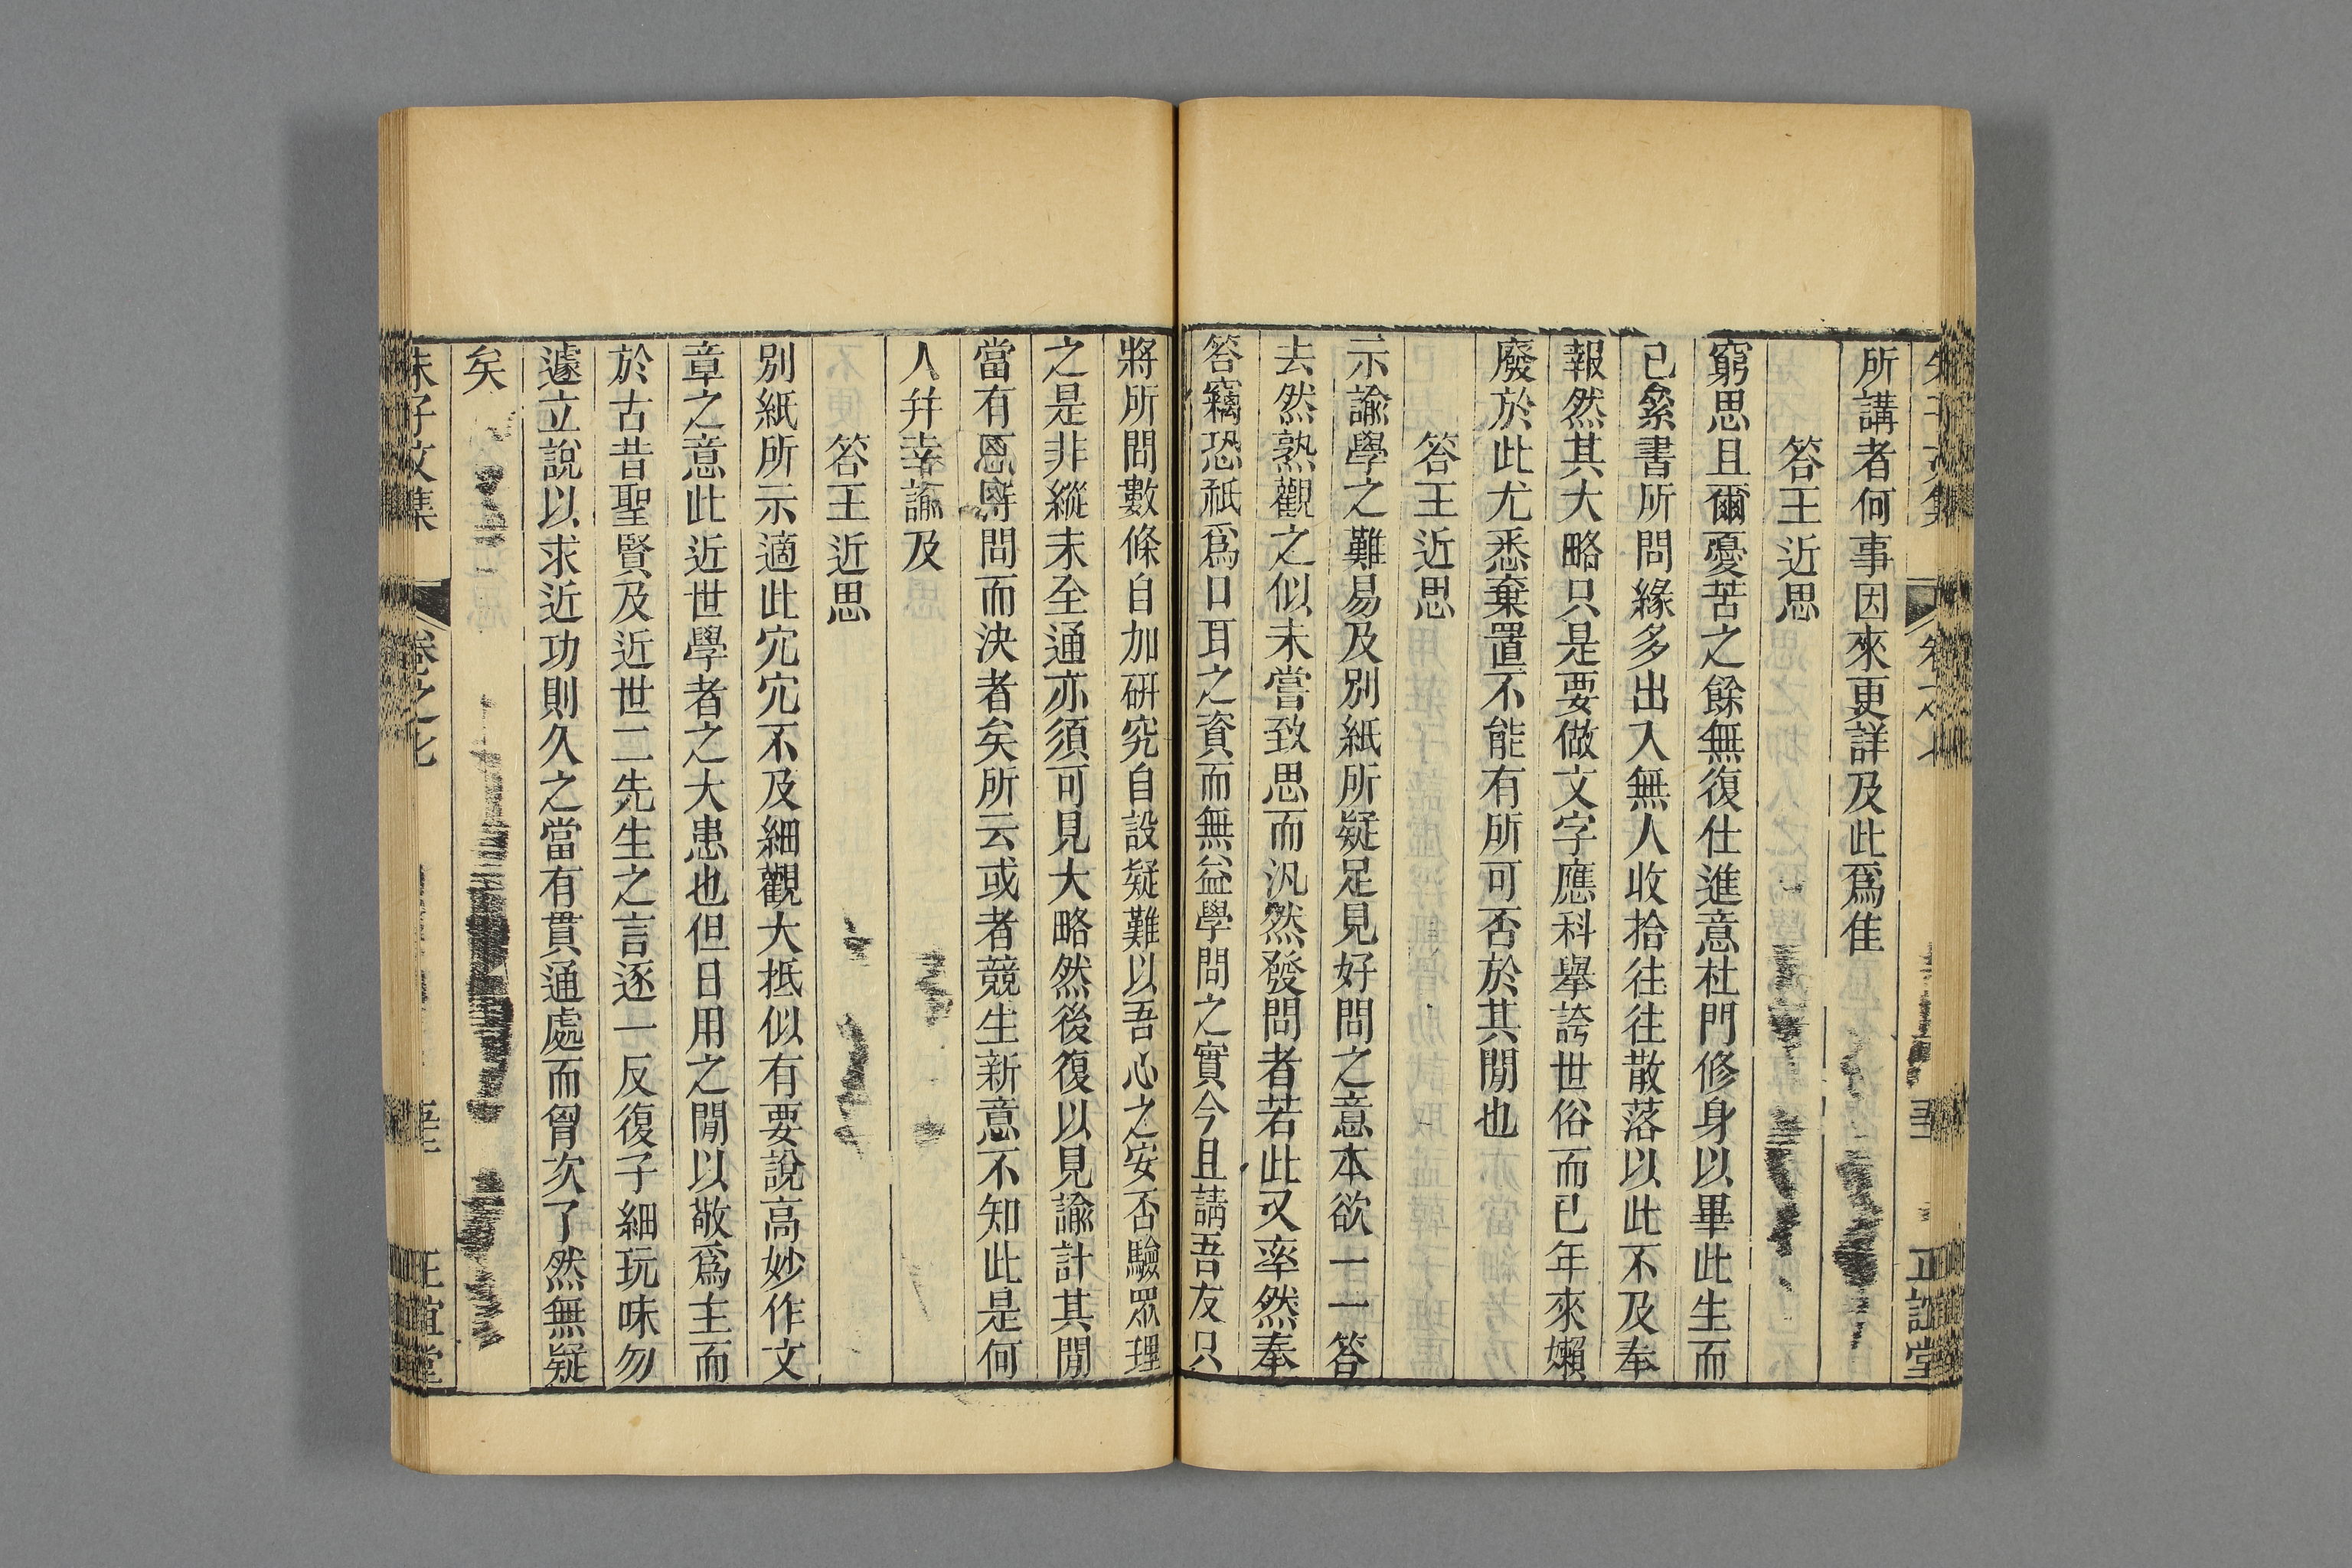 所講者何事因來更詳及此爲佳
答王近思
窮思且爾憂苦之餘無復仕進意杜門修身以畢此生而
已絫書所問緣多出入無人收拾往往散落以此不及奉
報然其大略只是要做文字應科舉誇世俗而已年來嬾
廢於此尤悉棄置不能有所可否於其閒也
答王近思
示諭學之難易及別紙所疑足見好問之意本欲一一答
去然熟觀之似未嘗致思而汎然發問者若此又率然奉
答竊恐祇爲口耳之資而無益學問之實今且請吾友只
將所問數條自加研究自設疑難以吾心之安否驗眾理
之是非縱未至通亦須可見大略然後復以見諭計其閒
當有不待問而決者矣所云或者競生新意不知此是何
人幷幸諭及
答王近思
別紙所示適此宂宂不及細觀大抵似有要說高妙作文
章之意此近世學者之大患也但日用之閒以敬爲主而
於古昔聖賢及近世二先生之言逐一反復子細玩味勿
遽立說以求近功則久之當有貫通處而胷次了然無疑
矣
朱子文集 卷之七 正誼堂